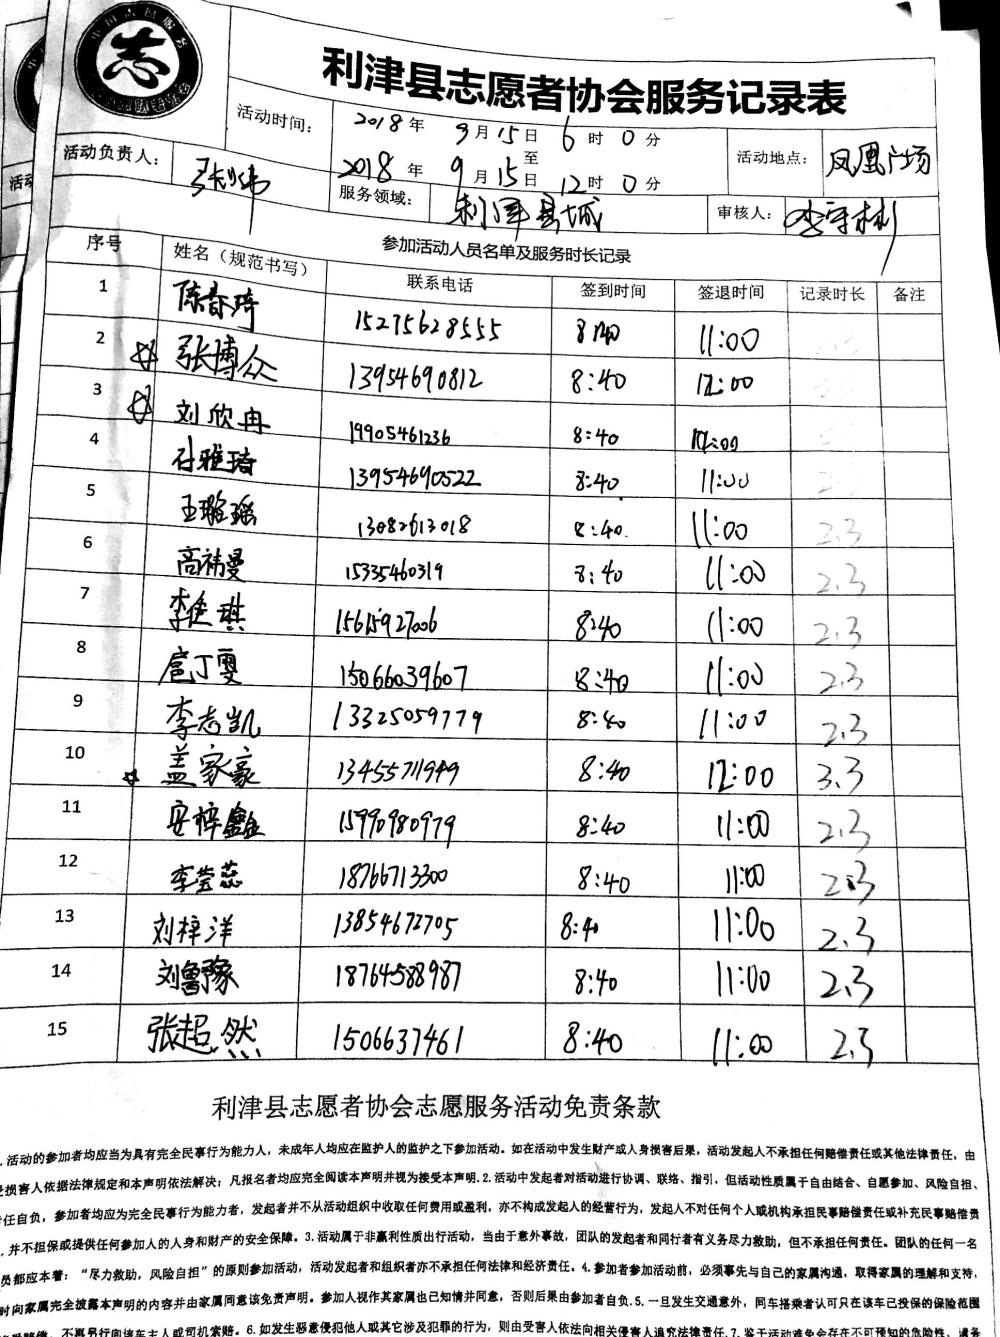 志
利津县志愿者协会服务记录表
活动时间: 2018年 9月15日 6时 0分
至
2018年 9月15日 12时 0分
活动地点: 凤凰广场
活动负责人:
服务领域: 利津县城
审核人:
参加活动人员名单及服务时长记录
序号 姓名（规范书写） 联系电话 签到时间 签退时间 记录时长 备注
1 陈春琦 15275628555 8:40 11:00
2 ☆ 张博众 13954690812 8:40 12:00
3 ☆ 刘欣冉 19905461236 8:40 12:00
4 石雅琦 13954690522 8:40 11:00
5 王璐瑶 13082613018 8:40. 11:00 2.3
6 高祎曼 15335460319 8:40 11:00 2.3
7 李佳琪 15615927006 8:40 11:00 2.3
8 扈丁雯 15066039607 8:40 11:00 2.3
9 李志凯 13325059779 8:40 11:00 2.3
10 ☆ 盖家豪 13455711949 8:40 12:00 3.3
11 安梓鑫 15990980979 8:40 11:00 2.3
12 李莹蕊 18766713300 8:40 11:00 2.3
13 刘梓洋 13854672705 8:40 11:00 2.3
14 刘鲁豫 18764588987 8:40 11:00 2.3
15 张超然 1506637461 8:40 11:00 2.3
利津县志愿者协会志愿服务活动免责条款
.活动的参加者均应当为具有完全民事行为能力人，未成年人均应在监护人的监护之下参加活动。如在活动中发生财产或人身损害后果，活动发起人不承担任何赔偿责任或其他法律责任，由
损害人依据法律规定和本声明依法解决；凡报名者均应完全阅读本声明并视为接受本声明.2.活动中发起者对活动进行协调、联络、指引，但活动性质属于自由结合、自愿参加、风险自担、
任自负，参加者均应为完全民事行为能力者，发起者并不从活动组织中收取任何费用或盈利，亦不构成发起人的经营行为，发起人不对任何个人或机构承担民事赔偿责任或补充民事赔偿责
，并不担保或提供任何参加人的人身和财产的安全保障。3.活动属于非赢利性质出行活动，当由于意外事故，团队的发起者和同行者有义务尽力救助，但不承担任何责任。团队的任何一名
员都应本着：“尽力救助，风险自担”的原则参加活动，活动发起者和组织者亦不承担任何法律和经济责任。4.参加者参加活动前，必须事先与自己的家属沟通，取得家属的理解和支持，
时向家属完全披露本声明的内容并由家属同意该免责声明。参加人视作其家属也已知情并同意，否则后果由参加者自负.5.一旦发生交通意外，同车搭乘者认可只在该车已投保的保险范围
赔偿，不再另行向该车主人或司机索赔。6.如发生恶意侵犯他人或其它涉及犯罪的行为，则由受害人依法向相关侵害人追究法律责任.7.鉴于活动难免会存在不可预知的危险性，请务